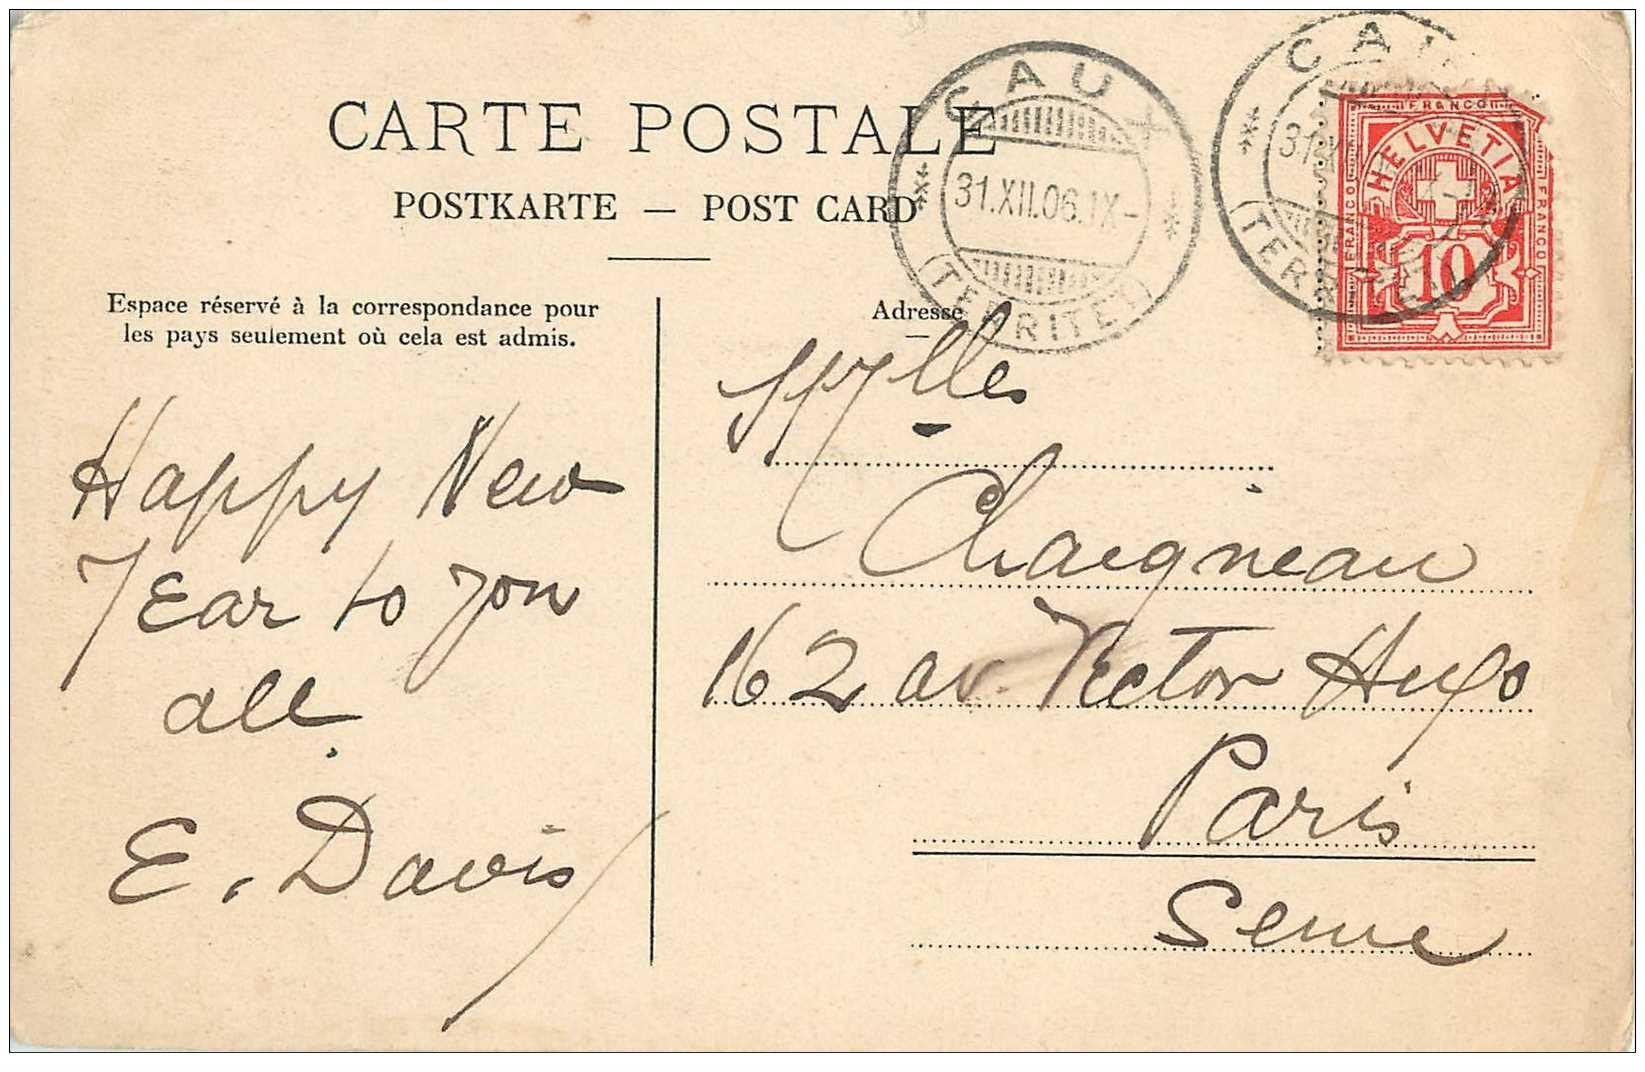 CARTE POSTALE
POSTKARTE — POST CARD
CAUX
31.XII.06.IX-
(TERRITET)
FRANCO
HELVETIA
FRANCO
FRANCO
10
Espace réservé à la correspondance pour
les pays seulement où cela est admis.
Adresse
Happy New
Year to you
all.
E. Davis
Mlles
Chaigneau
162 av. Victor Hugo
Paris
Seine